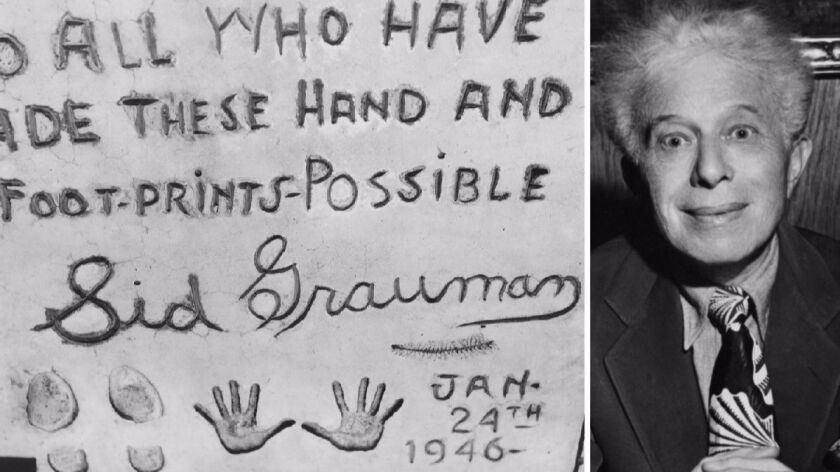 O ALL WHO HAVE
ADE THESE HAND AND
FOOT-PRINTS-POSSIBLE
Sid Grauman
JAN.
24TH
1946-